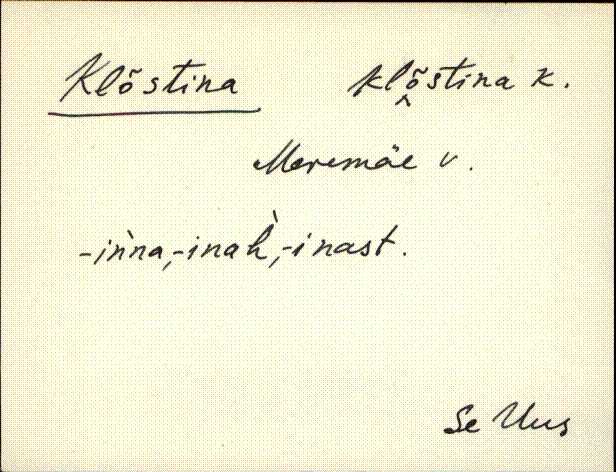 Klõstina klõ̭stina k.
Meremäe v.
-iǹna, -inah̀, -inast.
Se Uus